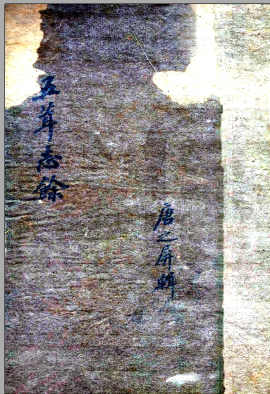 五茸志餘
唐之屏輯